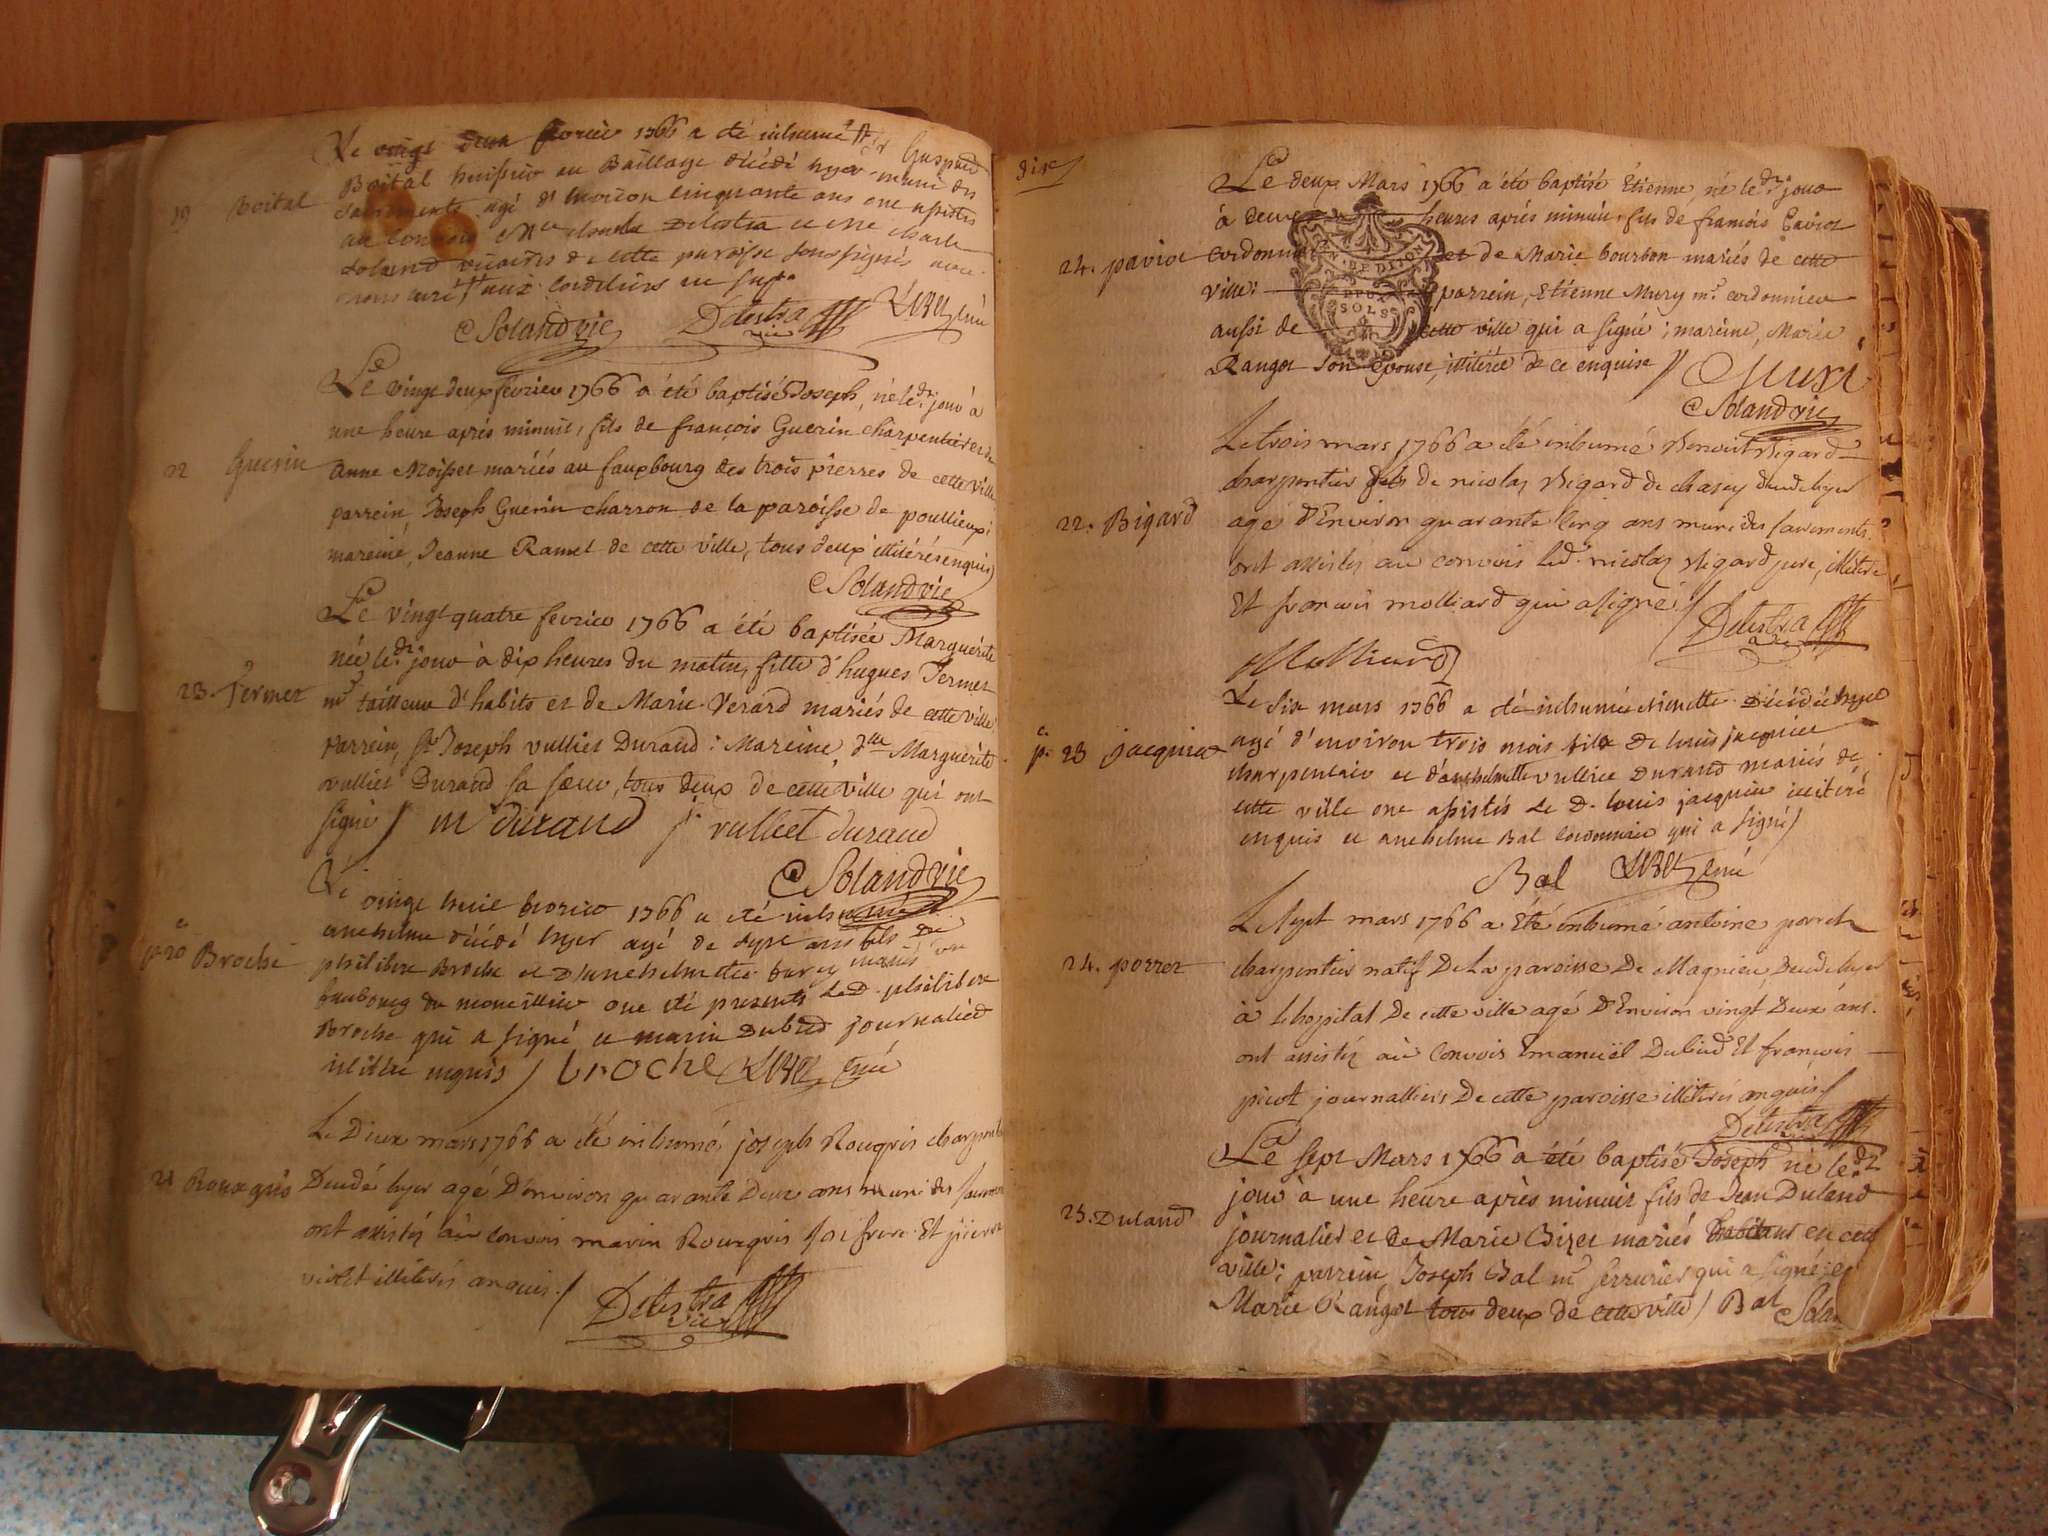 19 Boital
Le vingt deux fevrier 1766 a été inhumé Sr Guspard
Boital huissier au Baillage décédé hyer muni des
sacrements agé d'environ cinquante ans ont assistés
au convoi Mre Delestra et Mre
Soland vicaires de cette paroisse soussignés avec
nous curé aux cordeliers
C Soland vic Delestra vic curé
22 Guerin
Le vingt deux fevrier 1766 a été baptisé Joseph, né le dt jour à
une heure aprés minuit, fils de françois Guerin charpentier et de
Anne Moisset mariés au fauxbourg des trois pierres de cette ville
parrein, Joseph Guerin charron de la paroisse de poullieux;
mareine, Jeanne Ramel de cette ville, tous deux illitérés enquis
C Soland vic
23. fermet
Le vingt quatre fevrier 1766 a été baptisée Marguérite
née le dt jour à dix heures du matin, fille d'hugues Fermet
mtre tailleur d'habits et de Marie Verard mariés de cette ville
parrein, Sr Joseph vulliet Durand: Mareine, Dlle Marguérite
vulliet Durand sa sœur, tous deux de cette ville qui ont
signé / m durand j. vulliet durand
C Soland vic
p. 20 Broche
Le vingt huit fevrier 1766 a été inhumé
anthelme décédé hyer agé de sept ans fils de
philibert Broche et D'anthelmette mariés
faubourg du ont été presents Le D. philibert
Broche qui a signé et marin Dubied journalier
illitéré enquis / broche curé
21 Rougris
Le Deux mars 1766 a été inhumé joseph Rougris charpentier
Decedé hyer agé D'environ quarante Deux ans muni des sacrements
ont assistés au convois marin Rougris son frere Et pierre
violet illiterés enquis. /
Delestra vic
dix
24. paviot
Le deux Mars 1766 a été baptisé Etienne, né le dt jour
à deux heures aprés minuit, fils de françois Paviot
cordonnier et de Marie bourbon mariés de cette
ville: parrein, Etienne Mury mtre cordonnier
aussi de cette ville qui a signé; mareine, Marie
Rangot son epouse, illitérée de ce enquise / Muri
C Soland vic
22. Bigard
Le trois mars 1766 a été inhumé Benoit Bigard
charpentier fils de nicolas Bigard de chasey decedé hyer
agé D'Environ quarante cinq ans muni des sacrements.
ont assistés au convois Led. nicolas Bigard pere, illiteré
Et françois molliard qui a signé /
Delestra vic
Molliard
p. 23 jacquier
Le six mars 1766 a été inhumée décédée hyer
agé d'environ trois mois fille De louis jacquier
charpentier et d'anthelmette vulliet Durand mariés de
cette ville ont assistés Le D. louis jacquier illitéré
enquis et anthelme Bal cordonnier qui a signé /
Bal curé
24. porret
Le sept mars 1766 a Eté inhumé antoine porret
charpentier natif De La paroisse De Magnieu, Decedé hyer
à Lhopital De cette ville agé D'Environ vingt Deux ans.
ont assistés au convois Emanuël Dubied Et francois
picot journalliers De cette paroisse illiterés enquis /
Delestra
25. Duland
Le sept Mars 1766 a été baptisé Joseph né le dt
jour à une heure aprés minuit fils de Jean Duland
journalier et de Marie Bizet mariés habitant en cette
ville; parrein, Joseph Bal mtre serrurier qui a signé; et
Marie Rangot tous deux de cette ville / Bal C Solan